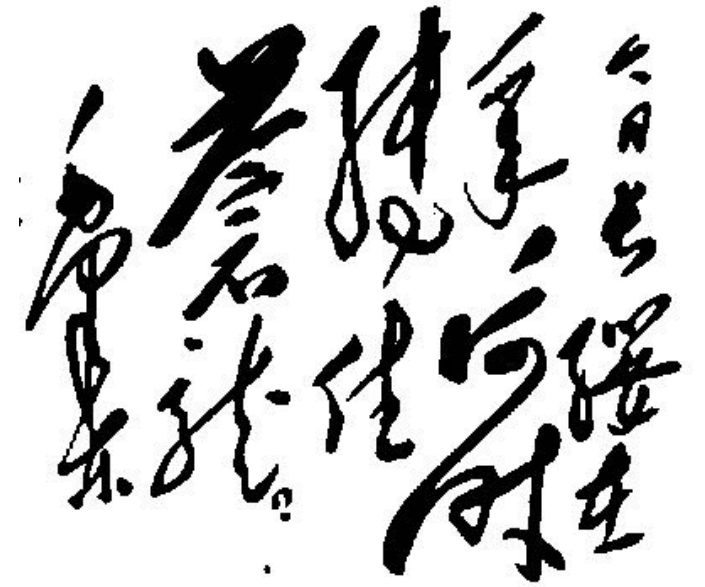 今日長纓在
手何時
縛住
蒼龍。
毛澤東